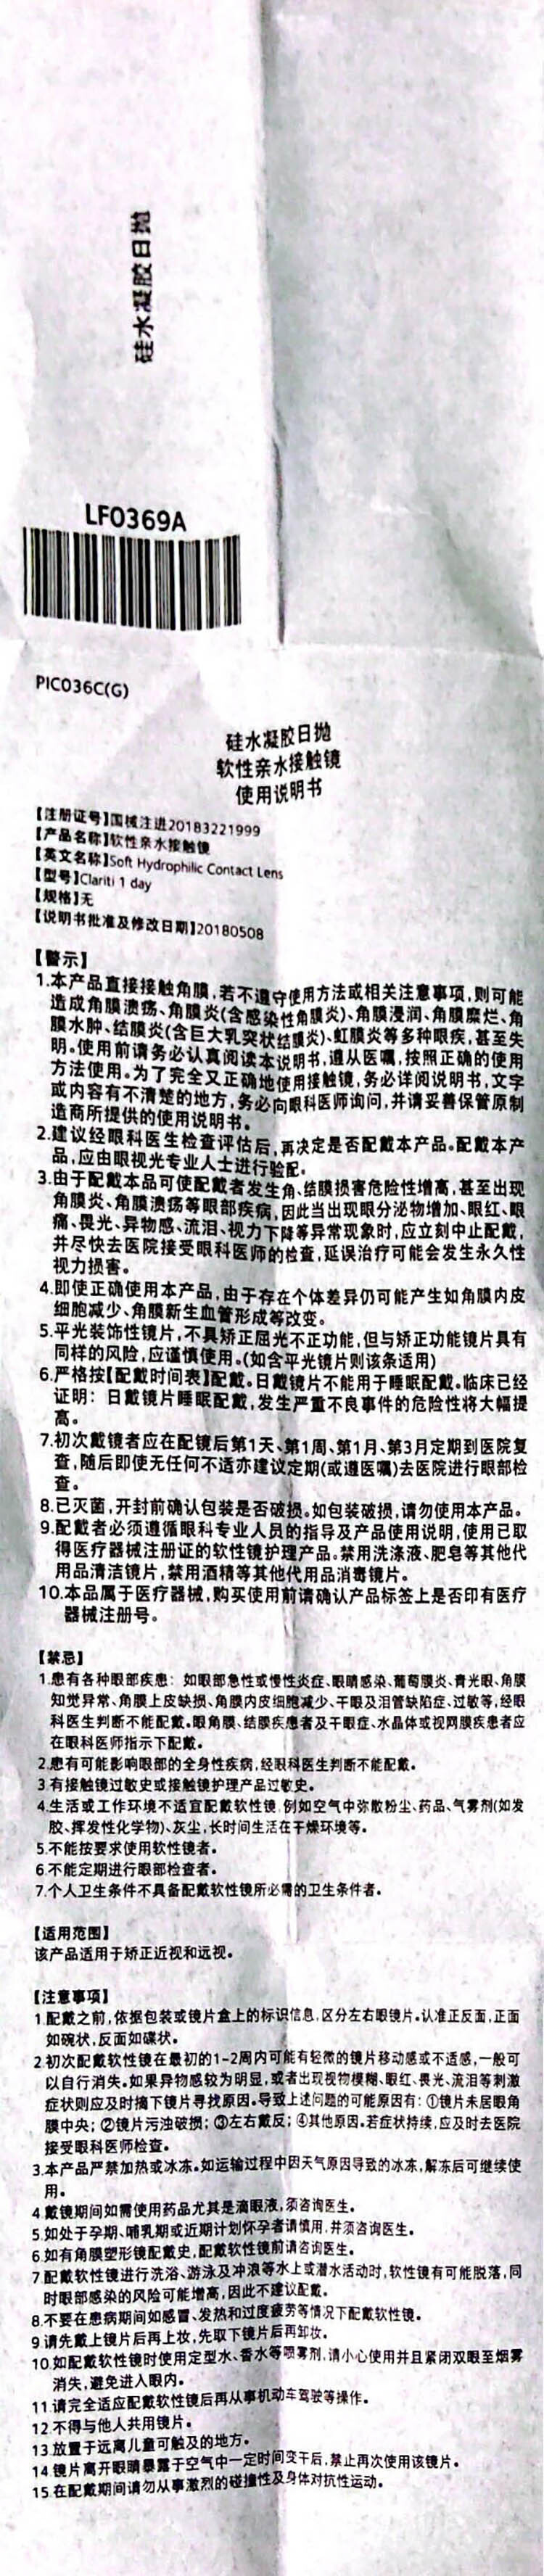 硅水凝胶日抛
LF0369A
PIC036C(G)
硅水凝胶日抛
软性亲水接触镜
使用说明书
【注册证号】国械注进20183221999
【产品名称】软性亲水接触镜
【英文名称】Soft Hydrophilic Contact Lens
【型号】Clariti 1 day
【规格】无
【说明书批准及修改日期】20180508
【警示】
1.本产品直接接触角膜,若不遵守使用方法或相关注意事项,则可能
造成角膜溃疡、角膜炎(含感染性角膜炎)、角膜浸润、角膜糜烂、角
膜水肿、结膜炎(含巨大乳突状结膜炎)、虹膜炎等多种眼疾,甚至失
明。使用前请务必认真阅读本说明书,遵从医嘱,按照正确的使用
方法使用。为了完全又正确地使用接触镜,务必详阅说明书,文字
或内容有不清楚的地方,务必向眼科医师询问,并请妥善保管原制
造商所提供的使用说明书。
2.建议经眼科医生检查评估后,再决定是否配戴本产品。配戴本产
品,应由眼视光专业人士进行验配。
3.由于配戴本品可使配戴者发生角、结膜损害危险性增高,甚至出现
角膜炎、角膜溃疡等眼部疾病,因此当出现眼分泌物增加、眼红、眼
痛、畏光、异物感、流泪、视力下降等异常现象时,应立刻中止配戴,
并尽快去医院接受眼科医师的检查,延误治疗可能会发生永久性
视力损害。
4.即使正确使用本产品,由于存在个体差异仍可能产生如角膜内皮
细胞减少、角膜新生血管形成等改变。
5.平光装饰性镜片,不具矫正屈光不正功能,但与矫正功能镜片具有
同样的风险,应谨慎使用。(如含平光镜片则该条适用)
6.严格按【配戴时间表】配戴。日戴镜片不能用于睡眠配戴。临床已经
证明：日戴镜片睡眠配戴,发生严重不良事件的危险性将大幅提
高。
7.初次戴镜者应在配镜后第1天、第1周、第1月、第3月定期到医院复
查,随后即使无任何不适亦建议定期(或遵医嘱)去医院进行眼部检
查。
8.已灭菌,开封前确认包装是否破损。如包装破损,请勿使用本产品。
9.配戴者必须遵循眼科专业人员的指导及产品使用说明,使用已取
得医疗器械注册证的软性镜护理产品。禁用洗涤液、肥皂等其他代
用品清洁镜片,禁用酒精等其他代用品消毒镜片。
10.本品属于医疗器械,购买使用前请确认产品标签上是否印有医疗
器械注册号。
【禁忌】
1.患有各种眼部疾患：如眼部急性或慢性炎症、眼睛感染、葡萄膜炎、青光眼、角膜
知觉异常、角膜上皮缺损、角膜内皮细胞减少、干眼及泪管缺陷症、过敏等,经眼
科医生判断不能配戴。眼角膜、结膜疾患者及干眼症、水晶体或视网膜疾患者应
在眼科医师指示下配戴。
2.患有可能影响眼部的全身性疾病,经眼科医生判断不能配戴。
3 有接触镜过敏史或接触镜护理产品过敏史。
4.生活或工作环境不适宜配戴软性镜,例如空气中弥散粉尘、药品、气雾剂(如发
胶、挥发性化学物)、灰尘,长时间生活在干燥环境等。
5.不能按要求使用软性镜者。
6.不能定期进行眼部检查者。
7.个人卫生条件不具备配戴软性镜所必需的卫生条件者。
【适用范围】
该产品适用于矫正近视和远视。
【注意事项】
1.配戴之前,依据包装或镜片盒上的标识信息,区分左右眼镜片。认准正反面,正面
如碗状,反面如碟状。
2.初次配戴软性镜在最初的1-2周内可能有轻微的镜片移动感或不适感,一般可
以自行消失。如果异物感较为明显,或者出现视物模糊、眼红、畏光、流泪等刺激
症状则应及时摘下镜片寻找原因。导致上述问题的可能原因有：①镜片未居眼角
膜中央；②镜片污浊破损；③左右戴反；④其他原因。若症状持续,应及时去医院
接受眼科医师检查。
3.本产品严禁加热或冰冻。如运输过程中因天气原因导致的冰冻,解冻后可继续使
用。
4.戴镜期间如需使用药品尤其是滴眼液,须咨询医生。
5.如处于孕期、哺乳期或近期计划怀孕者请慎用,并须咨询医生。
6.如有角膜塑形镜配戴史,配戴软性镜前请咨询医生。
7.配戴软性镜进行洗浴、游泳及冲浪等水上或潜水活动时,软性镜有可能脱落,同
时眼部感染的风险可能增高,因此不建议配戴。
8.不要在患病期间如感冒、发热和过度疲劳等情况下配戴软性镜。
9.请先戴上镜片后再上妆,先取下镜片后再卸妆。
10.如配戴软性镜时使用定型水、香水等喷雾剂,请小心使用并且紧闭双眼至烟雾
消失,避免进入眼内。
11.请完全适应配戴软性镜后再从事机动车驾驶等操作。
12.不得与他人共用镜片。
13.放置于远离儿童可触及的地方。
14.镜片离开眼睛暴露于空气中一定时间变干后,禁止再次使用该镜片。
15.在配戴期间请勿从事激烈的碰撞性及身体对抗性运动。